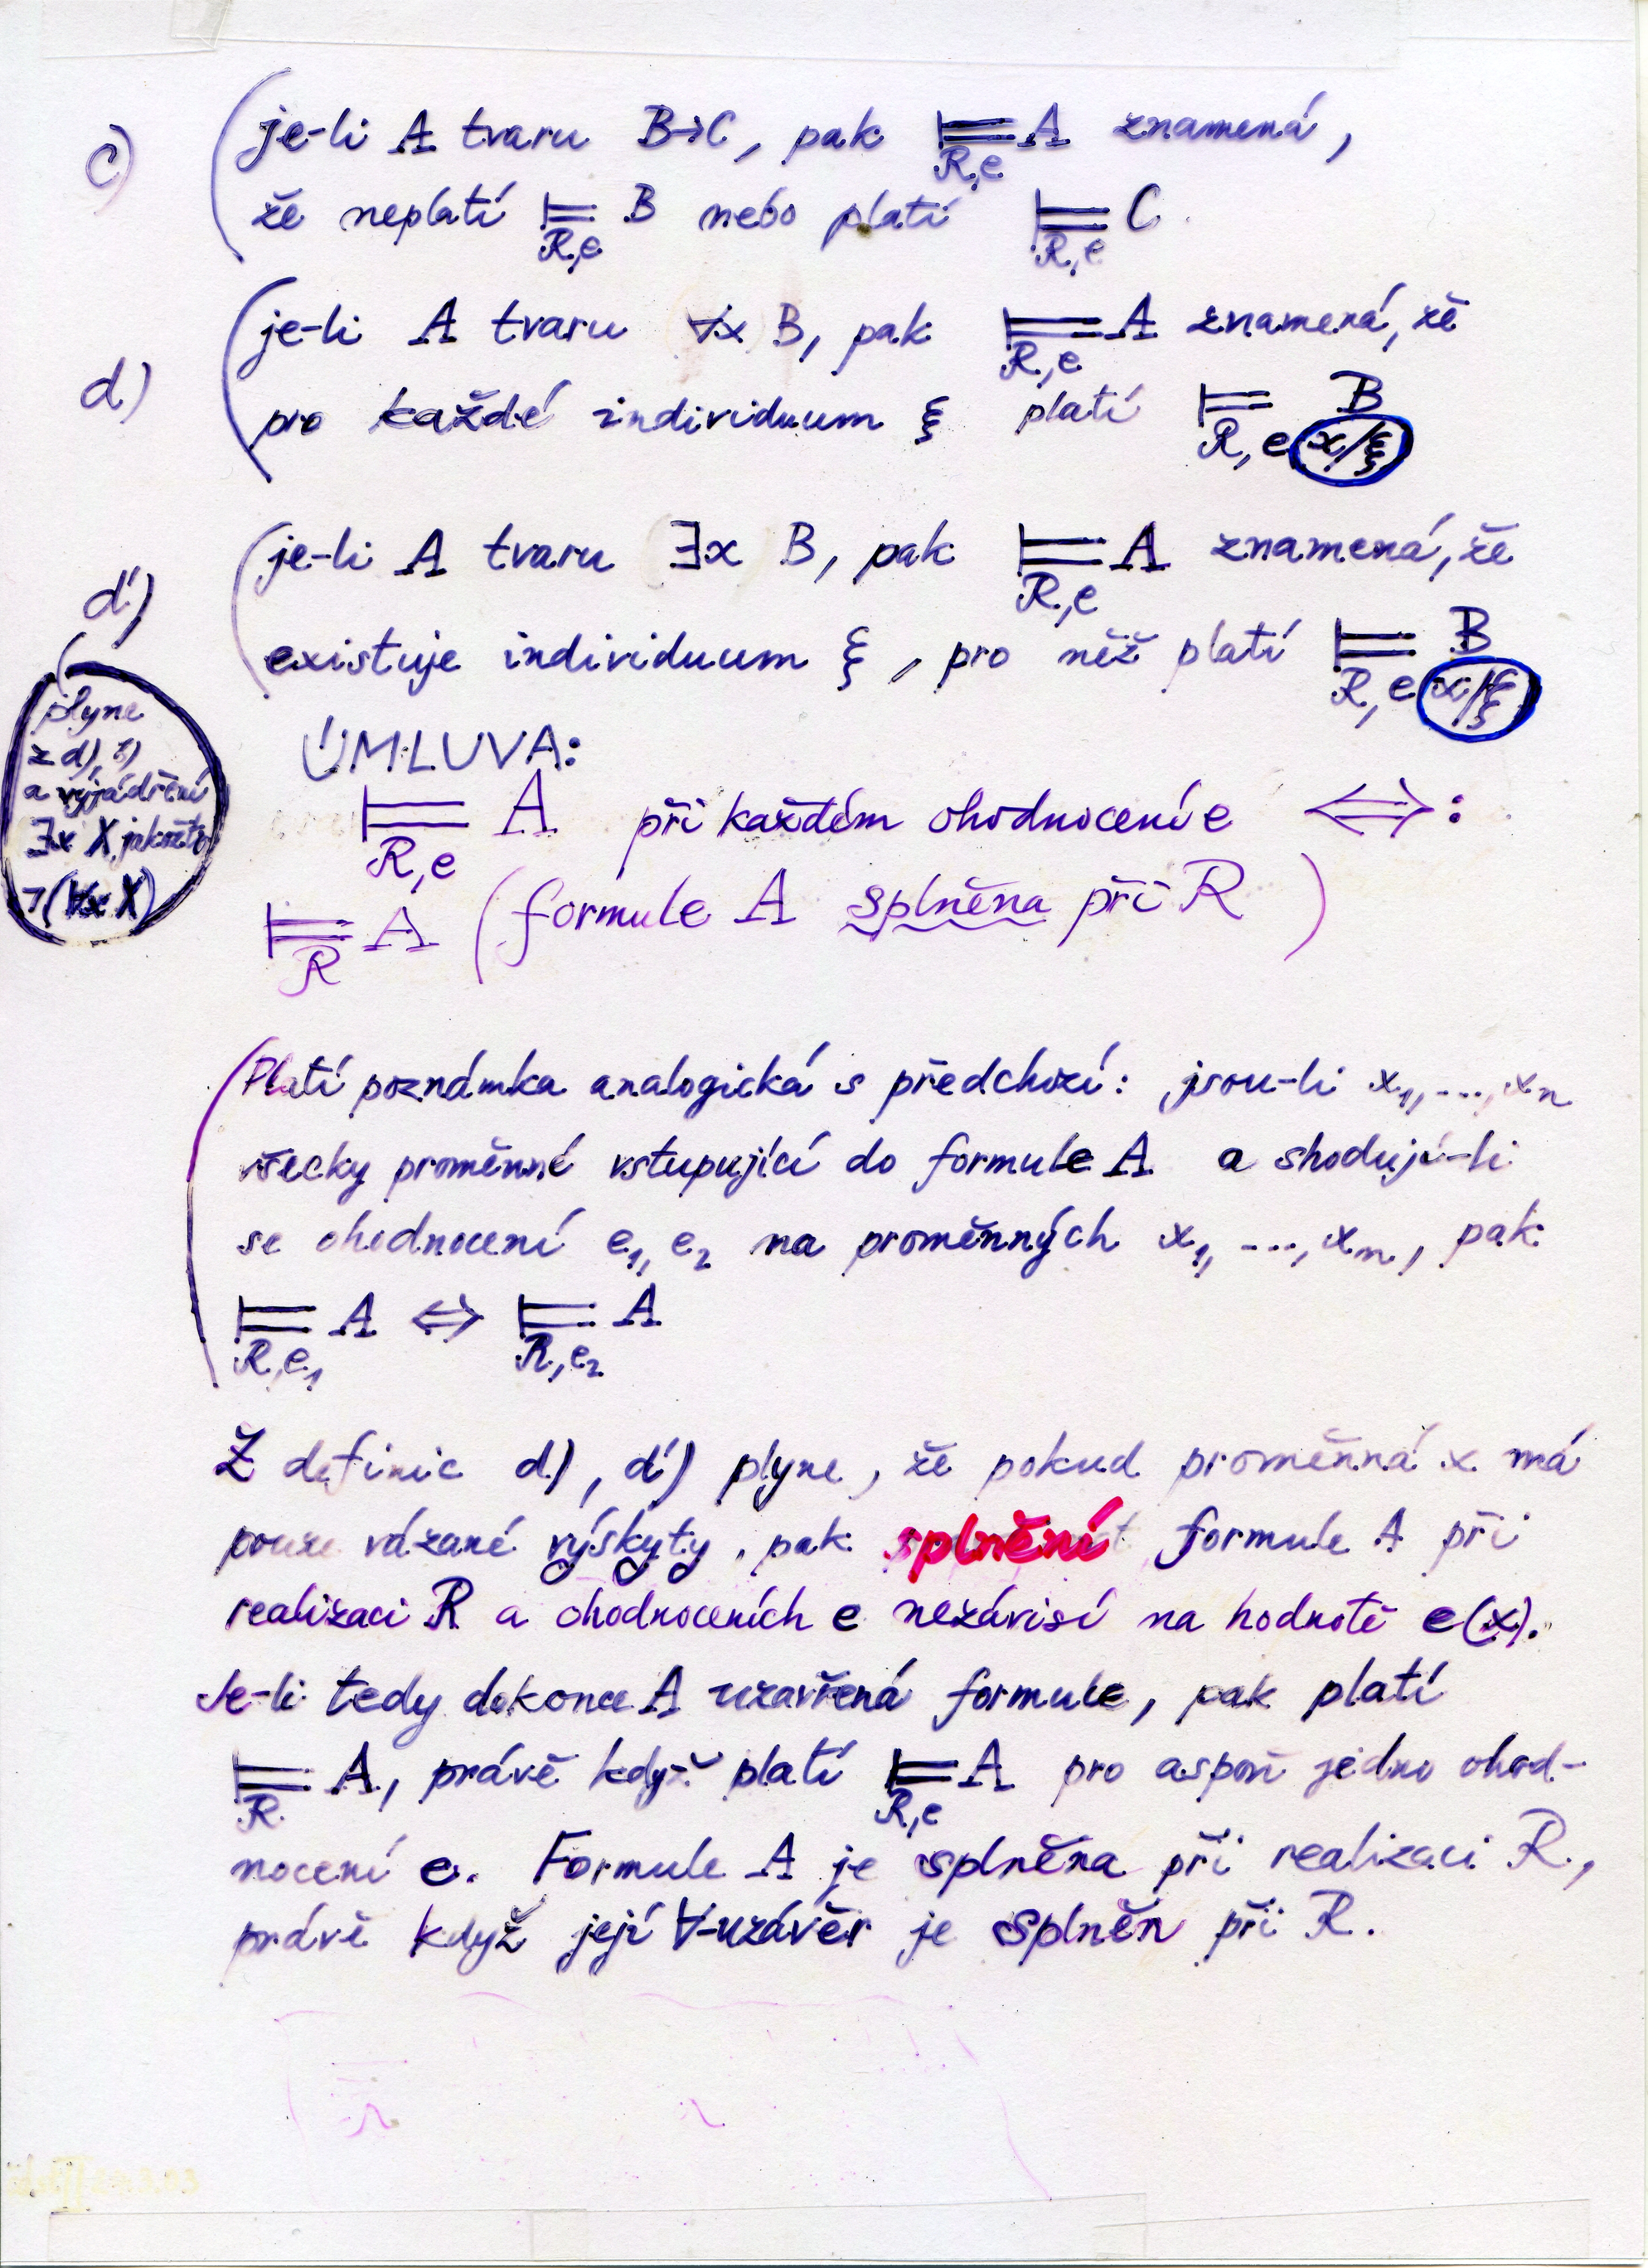 c) je-li A tvaru B→C, pak ⊨ A znamená,
R,e
že neplatí ⊨ B nebo platí ⊨ C.
R,e R,e
d) je-li A tvaru ∀x B, pak ⊨ A znamená, že
R,e
pro každé individuum ξ platí ⊨ B
R,e x/ξ
d') je-li A tvaru ∃x B, pak ⊨ A znamená, že
R,e
existuje individuum ξ, pro něž platí ⊨ B
R,e x/ξ
plyne
z d),
a vyjádření
∃x X jakožto
¬(∀x X)
ÚMLUVA:
⊨ A při každém ohodnocení e ⟺:
R,e
⊨ A (formule A splněna při R)
R
(Platí poznámka analogická s předchozí: jsou-li x₁, ..., xₙ
všecky proměnné vstupující do formule A a shodují-li
se ohodnocení e₁, e₂ na proměnných x₁, ..., xₙ, pak
⊨ A ⇔ ⊨ A
R,e₁ R,e₂
Z definic d), d') plyne, že pokud proměnná x má
pouze vázané výskyty, pak splnění formule A při
realizaci R a ohodnoceních e nezávisí na hodnotě e(x).
Je-li tedy dokonce A uzavřená formule, pak platí
⊨ A, právě když platí ⊨ A pro aspoň jedno ohod-
R R,e
nocení e. Formule A je splněna při realizaci R,
právě když její ∀-uzávěr je splněn při R.